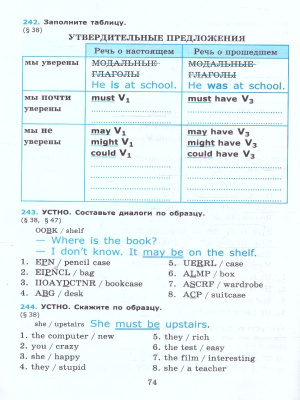 242. Заполните таблицу.
(§ 38)
УТВЕРДИТЕЛЬНЫЕ ПРЕДЛОЖЕНИЯ
Речь о настоящем Речь о прошедшем
мы уверены МОДАЛЬНЫЕ ГЛАГОЛЫ He is at school. МОДАЛЬНЫЕ ГЛАГОЛЫ He was at school.
мы почти уверены must V1 must have V3
мы не уверены may V1 may have V3
might V1 might have V3
could V1 could have V3
243. УСТНО. Составьте диалоги по образцу.
(§ 38, § 47)
OOBK / shelf
— Where is the book?
— I don't know. It may be on the shelf.
1. EPN / pencil case
2. EIPNCL / bag
3. IIOAYDCTNR / bookcase
4. ABG / desk
5. UERRL / case
6. ALMP / box
7. ASCRF / wardrobe
8. ACP / suitcase
244. УСТНО. Скажите по образцу.
(§ 38)
she / upstairs She must be upstairs.
1. the computer / new
2. you / crazy
3. she / happy
4. they / stupid
5. they / rich
6. the test / easy
7. the film / interesting
8. she / a teacher
74